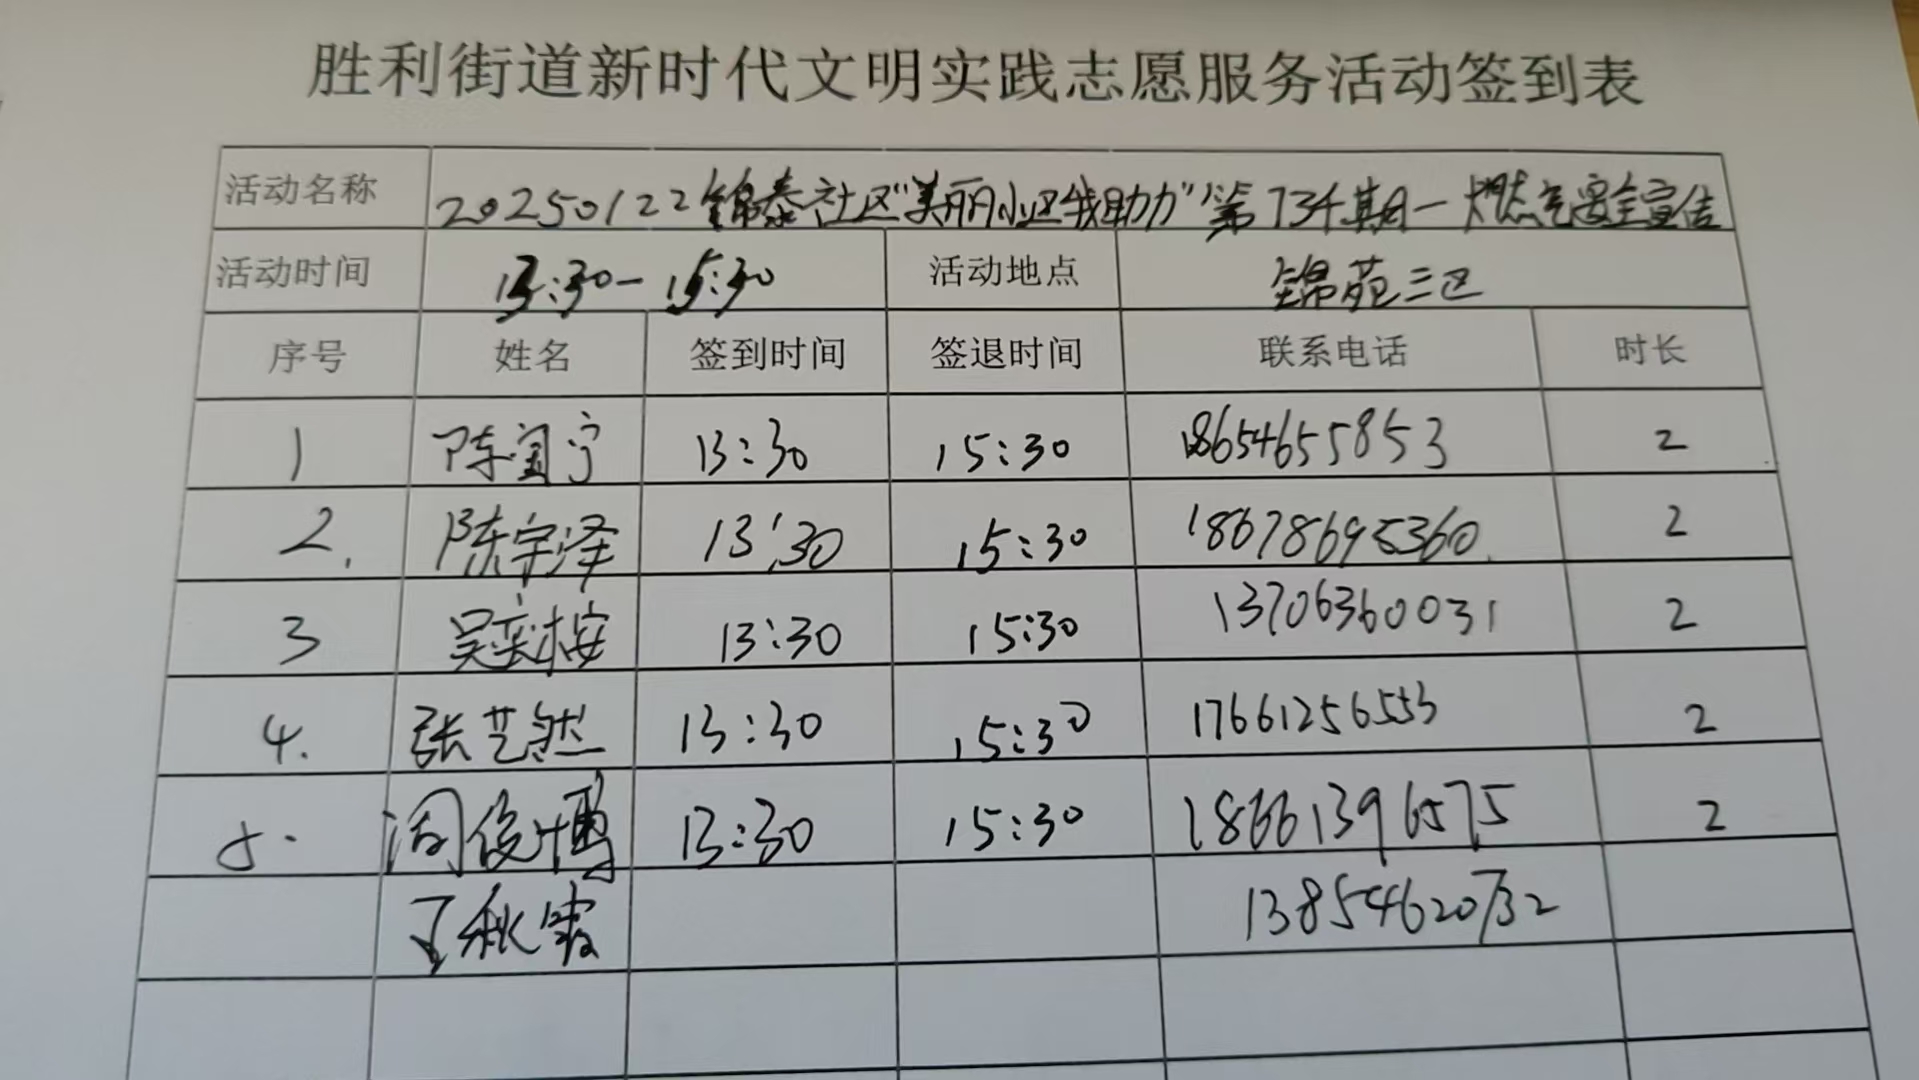 胜利街道新时代文明实践志愿服务活动签到表
活动名称 20250122锦泰社区"美丽小区我助力"第734期—燃气安全宣传
活动时间 13:30-15:30 活动地点 锦苑三区
序号 姓名 签到时间 签退时间 联系电话 时长
1 陈宜宁 13:30 15:30 18654655853 2
2. 陈宇泽 13:30 15:30 18678695360 2
3 吴奕桉 13:30 15:30 13706360031 2
4. 张艺然 13:30 15:30 17661256553 2
5. 周俊博 13:30 15:30 18661396575 2
丁秋霞 13854620732